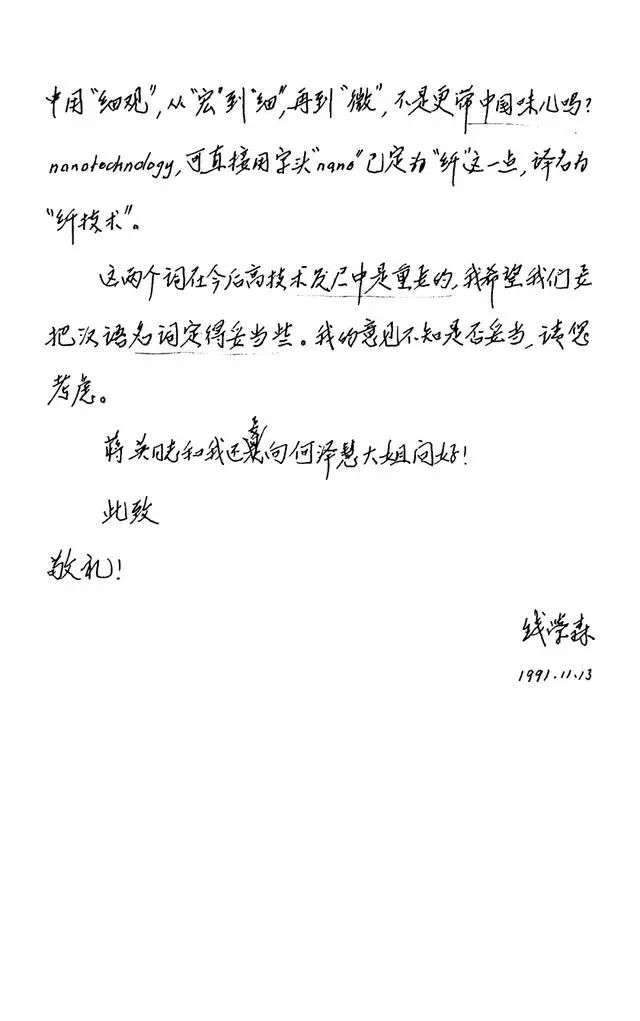 中用“细观”，从“宏”到“细”，再到“微”，不是更带中国味儿吗？
nanotechnology，可直接用字头“nano”已定为“纤”这一点，译名为
“纤技术”。
这两个词在今后高技术发展中是重要的，我希望我们要
把汉语名词定得妥当些。我的意见不知是否妥当，请您
考虑。
蒋英同志和我还要向何泽慧大姐问好！
此致
敬礼！
钱学森
1991.11.13